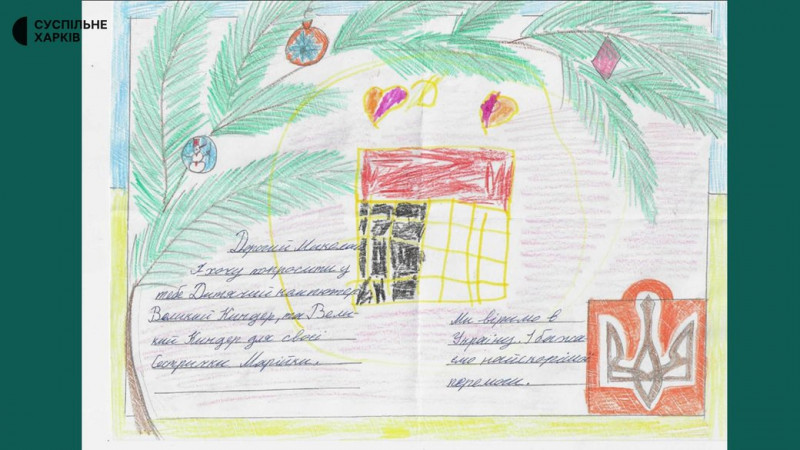 СУСПІЛЬНЕ
ХАРКІВ
Дорогий Миколаю
Я хочу попросити у
тебе Дитячий компютер,
Великий Киндер, та Вели-
кий Киндер для своєї
Сестрички Марійки.
Ми віримо в
Україну. І бажа-
ємо найскорішої
перемоги.